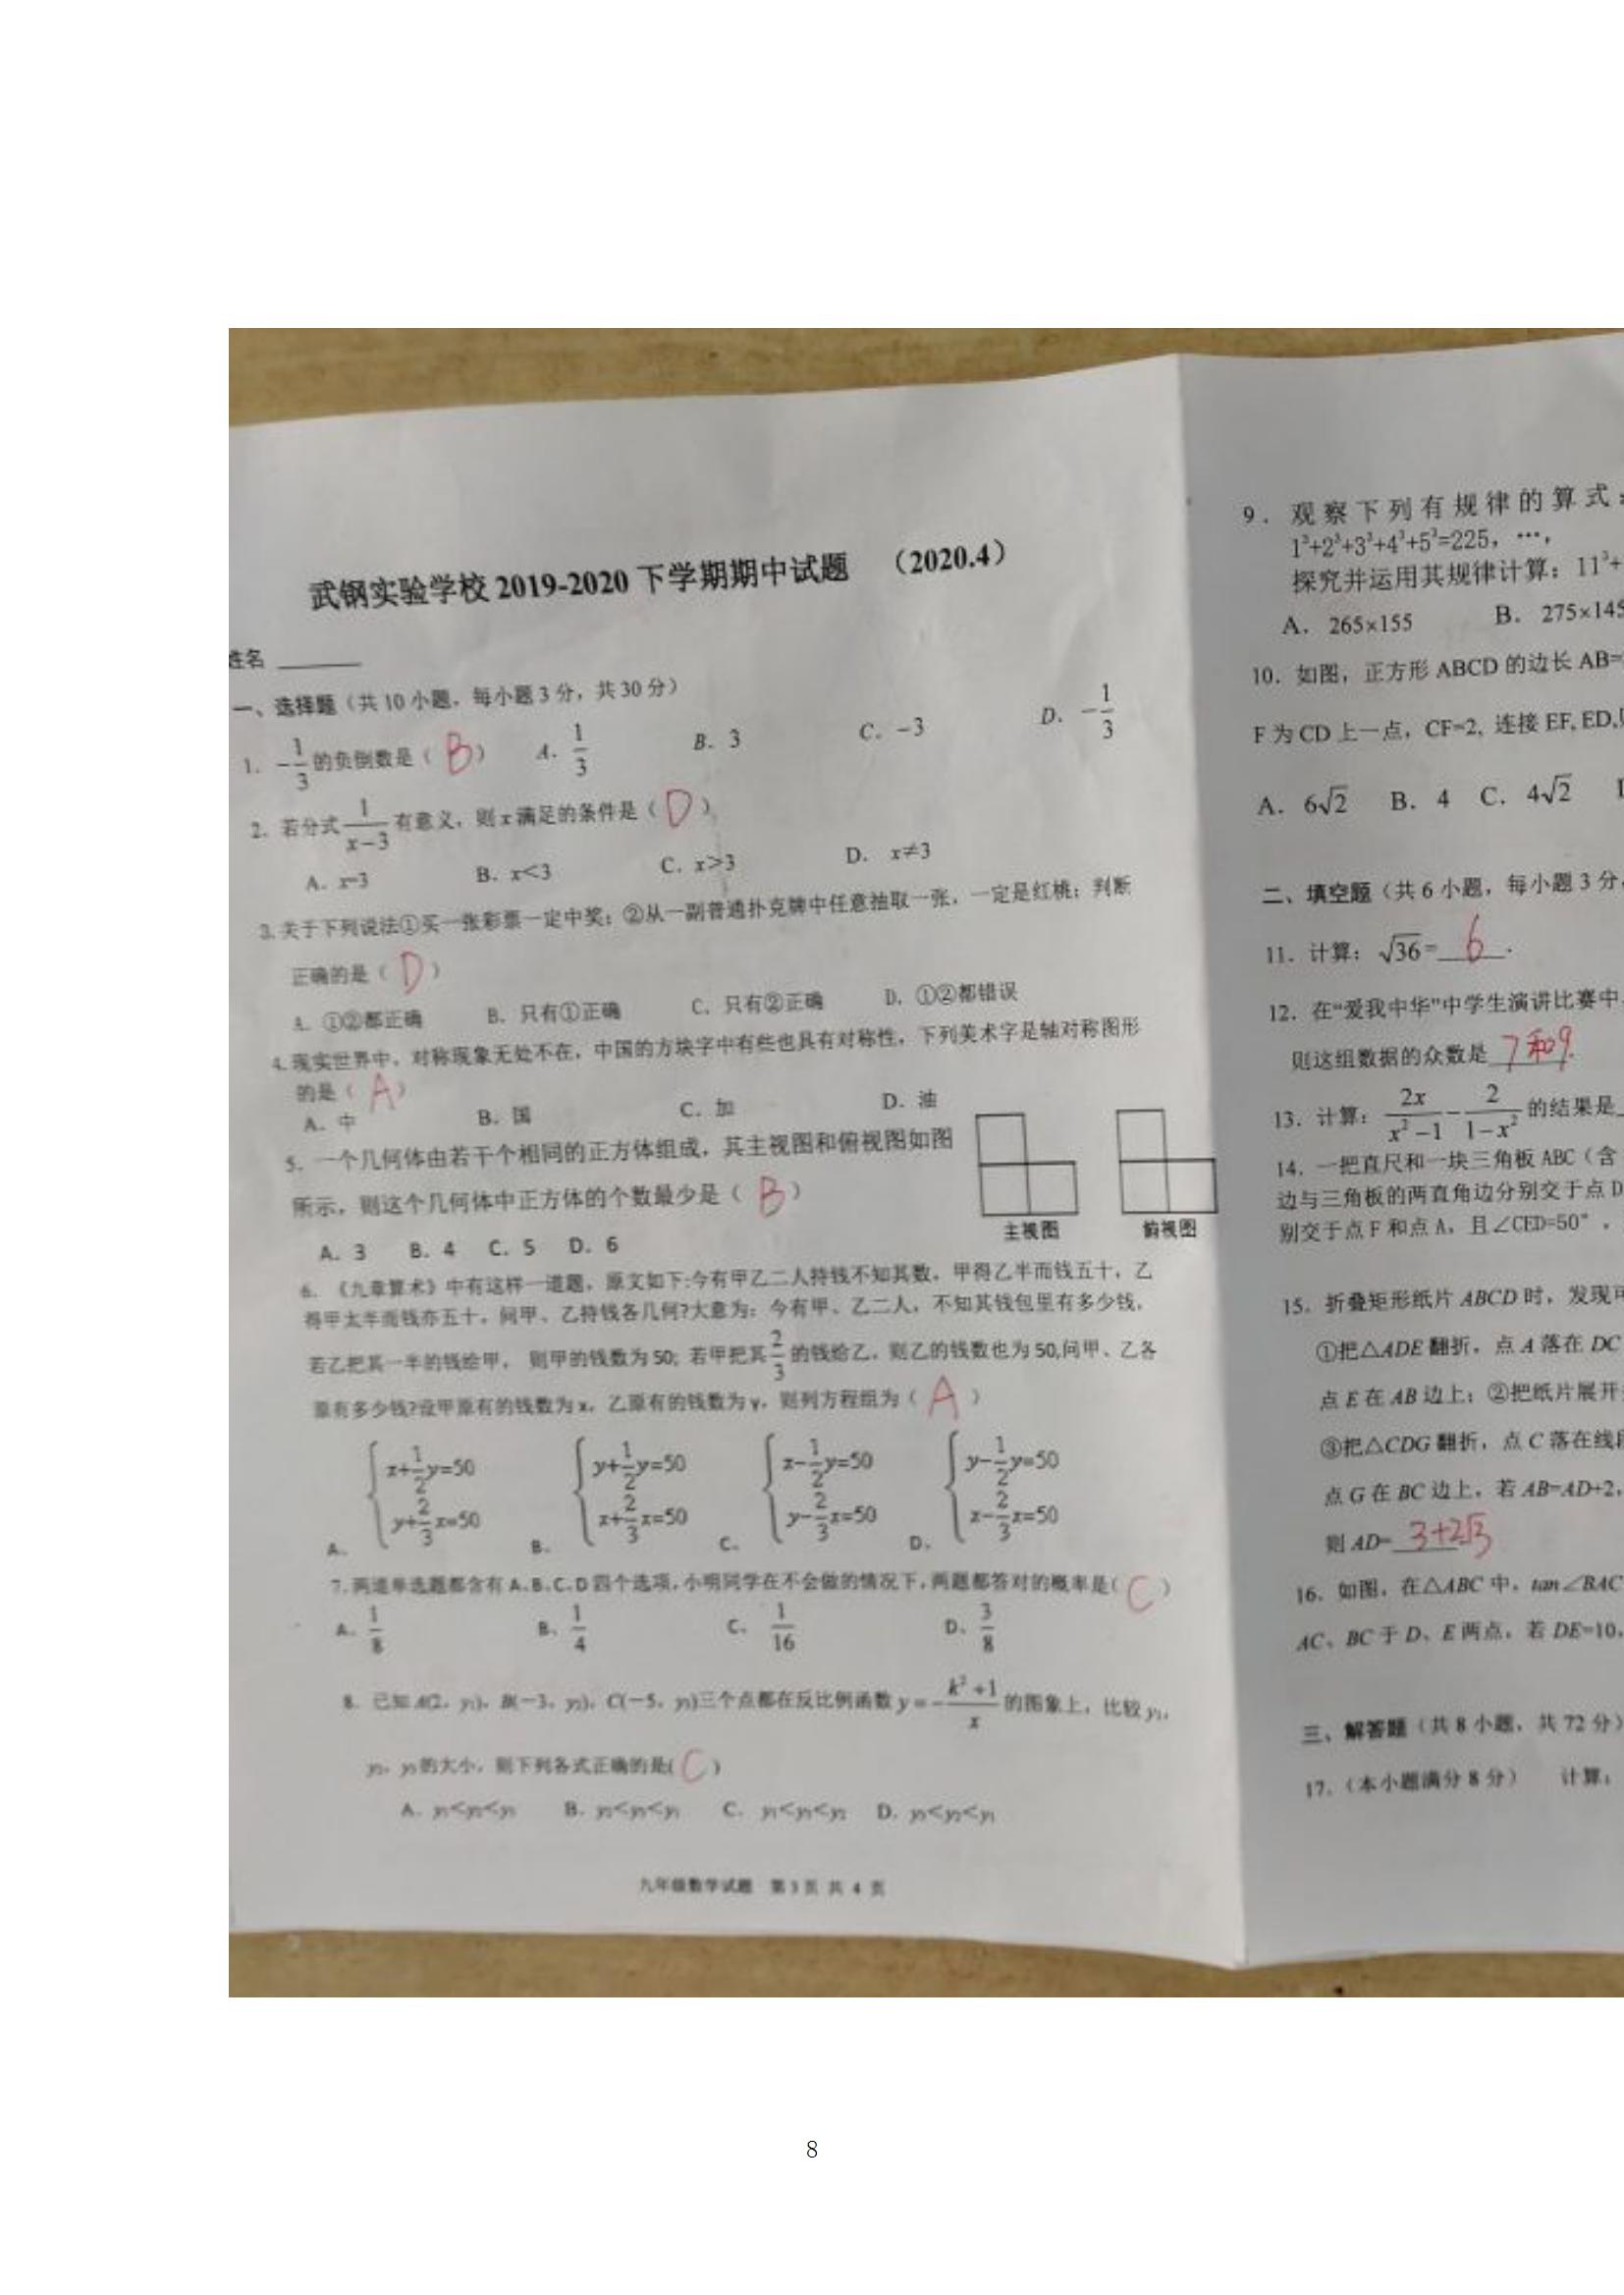 武钢实验学校 2019-2020 下学期期中试题 （2020.4）
姓名 ______
一、选择题（共 10 小题，每小题 3 分，共 30 分）
1. -1/3 的负倒数是（ B ） A. 1/3 B. 3 C. -3 D. -1/3
2. 若分式 1/(x-3) 有意义，则 x 满足的条件是（ D ）
A. x=3 B. x<3 C. x>3 D. x≠3
3.关于下列说法①买一张彩票一定中奖；②从一副普通扑克牌中任意抽取一张，一定是红桃；判断
正确的是（ D ）
A. ①②都正确 B. 只有①正确 C. 只有②正确 D. ①②都错误
4.现实世界中，对称现象无处不在，中国的方块字中有些也具有对称性，下列美术字是轴对称图形
的是（ A ）
A. 中 B. 国 C. 加 D. 油
5. 一个几何体由若干个相同的正方体组成，其主视图和俯视图如图
所示，则这个几何体中正方体的个数最少是（ B ）
主视图 俯视图
A. 3 B. 4 C. 5 D. 6
6. 《九章算术》中有这样一道题，原文如下:今有甲乙二人持钱不知其数，甲得乙半而钱五十，乙
得甲太半而钱亦五十，问甲、乙持钱各几何?大意为：今有甲、乙二人，不知其钱包里有多少钱，
若乙把其一半的钱给甲， 则甲的钱数为 50; 若甲把其 2/3 的钱给乙，则乙的钱数也为 50,问甲、乙各
原有多少钱?设甲原有的钱数为 x，乙原有的钱数为 y，则列方程组为（ A ）
x+1/2y=50 y+1/2y=50 x-1/2y=50 y-1/2y=50
A. y+2/3x=50 B. x+2/3x=50 C. y-2/3x=50 D. x-2/3x=50
7.两道单选题都含有 A、B、C、D 四个选项,小明同学在不会做的情况下,两题都答对的概率是( C )
A. 1/8 B. 1/4 C. 1/16 D. 3/8
8. 已知 A(2，y₁)，B(-3，y₂)，C(-5，y₃)三个点都在反比例函数 y=-(k²+1)/x 的图象上，比较 y₁，
y₂，y₃的大小，则下列各式正确的是( C )
A. y₁<y₂<y₃ B. y₂<y₃<y₁ C. y₁<y₃<y₂ D. y₃<y₂<y₁
九年级数学试题 第 3 页 共 4 页
9. 观察下列有规律的算式：
1³+2³+3³+4³+5³=225，…，
探究并运用其规律计算：11³+
A. 265×155 B. 275×145
10. 如图，正方形 ABCD 的边长 AB=
F 为 CD 上一点，CF=2, 连接 EF, ED,
A. 6√2 B. 4 C. 4√2
二、填空题（共 6 小题，每小题 3 分，
11. 计算：√36= 6 .
12. 在“爱我中华”中学生演讲比赛中，
则这组数据的众数是 7和9.
13. 计算：2x/(x²-1) - 2/(1-x²) 的结果是
14. 一把直尺和一块三角板 ABC（含
边与三角板的两直角边分别交于点 D
别交于点 F 和点 A，且∠CED=50°，
15. 折叠矩形纸片 ABCD 时，发现可
①把△ADE 翻折，点 A 落在 DC
点 E 在 AB 边上；②把纸片展开
③把△CDG 翻折，点 C 落在线段
点 G 在 BC 边上，若 AB=AD+2，
则 AD= 3+2√3
16. 如图，在△ABC 中，tan∠BAC
AC、BC 于 D、E 两点，若 DE=10，
三、解答题（共 8 小题，共 72 分）
17.（本小题满分 8 分） 计算：
8